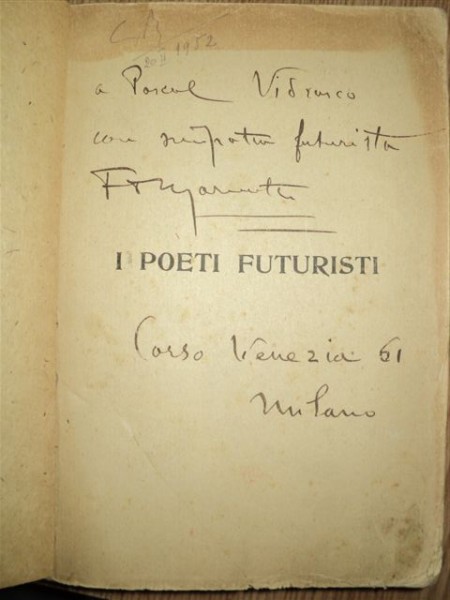 1952
a Pascal
con simpatia futurista
F T Marinetti
I POETI FUTURISTI
Corso Venezia 61
Milano